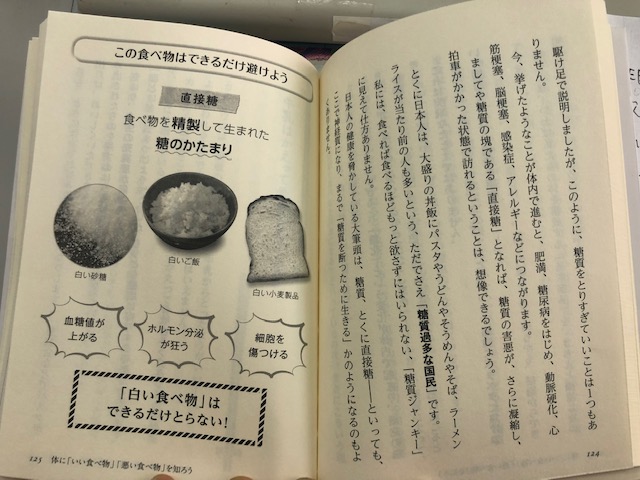 駆け足で説明しましたが、このように、糖質をとりすぎていいことは一つもあ
りません。
今、挙げたようなことが体内で進むと、肥満、糖尿病をはじめ、動脈硬化、心
筋梗塞、脳梗塞、感染症、アレルギーなどにつながります。
ましてや糖質の塊である「直接糖」となれば、糖質の害悪が、さらに凝縮し、
拍車がかかった状態で訪れるということは、想像できるでしょう。
とくに日本人は、大盛りの丼飯にパスタやうどんやそうめんやそば、ラーメン
ライスが当たり前の人も多いという、ただでさえ「糖質過多な国民」です。
私には、食べれば食べるほどもっと欲さずにはいられない、「糖質ジャンキー」
に見えて仕方ありません。
日本人の健康を脅かしている大筆頭は、糖質、とくに直接糖――といっても、
ここで神経質になり、まるで「糖質を断つために生きる」かのようになるのもよ
くありません。
124
この食べ物はできるだけ避けよう
直接糖
食べ物を精製して生まれた
糖のかたまり
白い砂糖
白いご飯
白い小麦製品
血糖値が
上がる
ホルモン分泌
が狂う
細胞を
傷つける
「白い食べ物」は
できるだけとらない!
125 体に「いい食べ物」「悪い食べ物」を知ろう